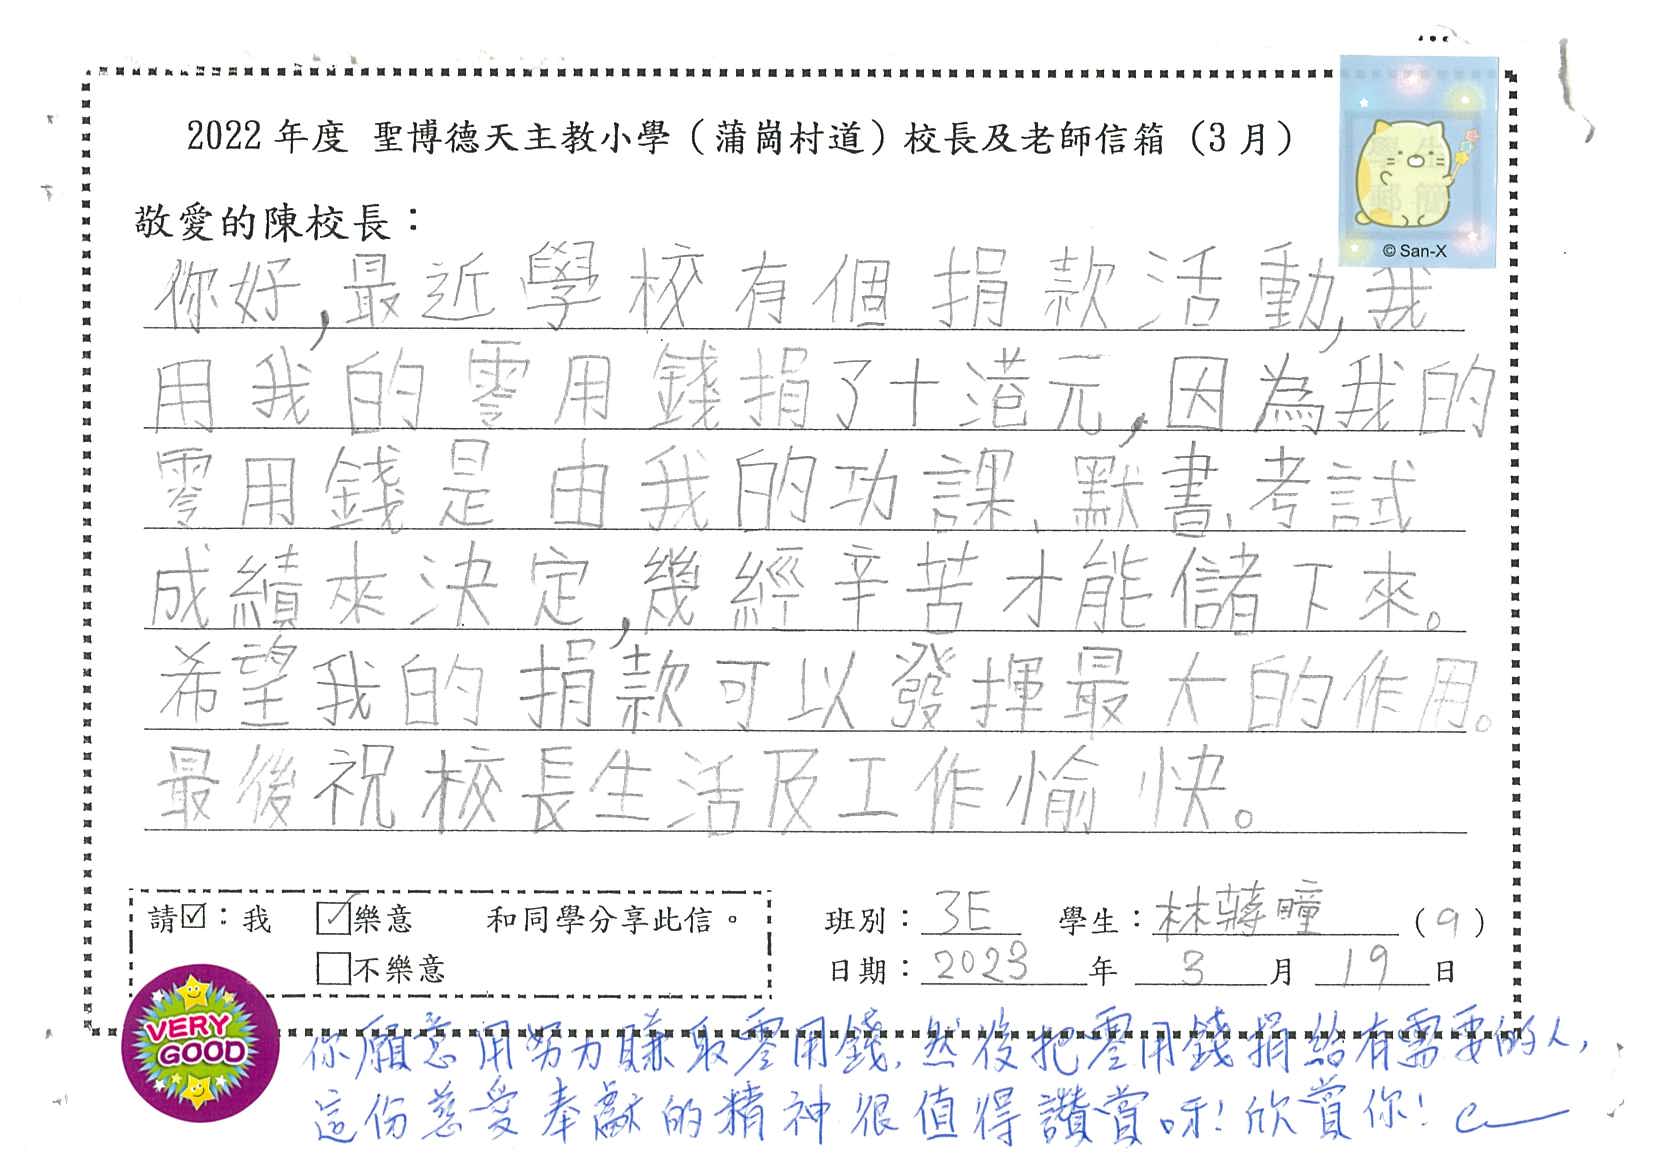 2022 年度 聖博德天主教小學（蒲崗村道）校長及老師信箱（3 月）
敬愛的陳校長：
© San-X
你好,最近學校有個捐款活動,我
用我的零用錢捐了十港元,因為我的
零用錢是由我的功課、默書、考試
成績來決定,幾經辛苦才能儲下來。
希望我的捐款可以發揮最大的作用。
最後祝校長生活及工作愉快。
請☑：我 ☑樂意 和同學分享此信。
□不樂意
班別：3E 學生：林蔣瞳（9）
日期：2023 年 3 月 19 日
VERY
GOOD
你願意用努力賺取零用錢,然後把零用錢捐給有需要的人,
這份慈愛奉獻的精神很值得讚賞呀!欣賞你!